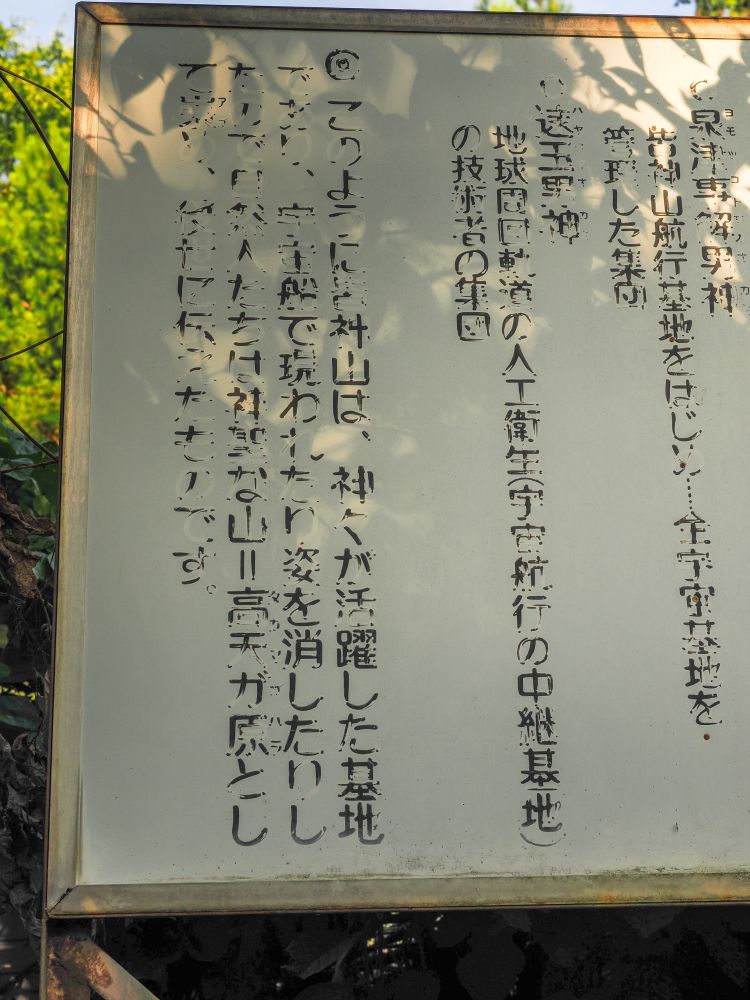 ○泉津事解男神
皆神山航行基地をはじめ…全宇宙基地を
管理した集団
○速玉男神
地球周回軌道の人工衛生(宇宙航行の中継基地)
の技術者の集団
◎このように皆神山は、神々が活躍した基地
であり、宇宙船で現われたり姿を消したりし
たので自然人たちは神聖な山=高天ガ原とし
て崇め、後世に伝えたものです。